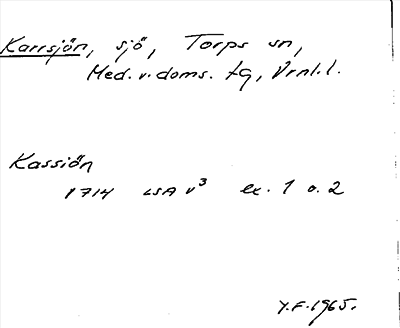 Karrsjön, sjö, Torps sn,
Med. v. doms. tg, Vrnl. l.
Kassiön
1714 LSA v³ ex. 1 o. 2
Y.F. 1965.